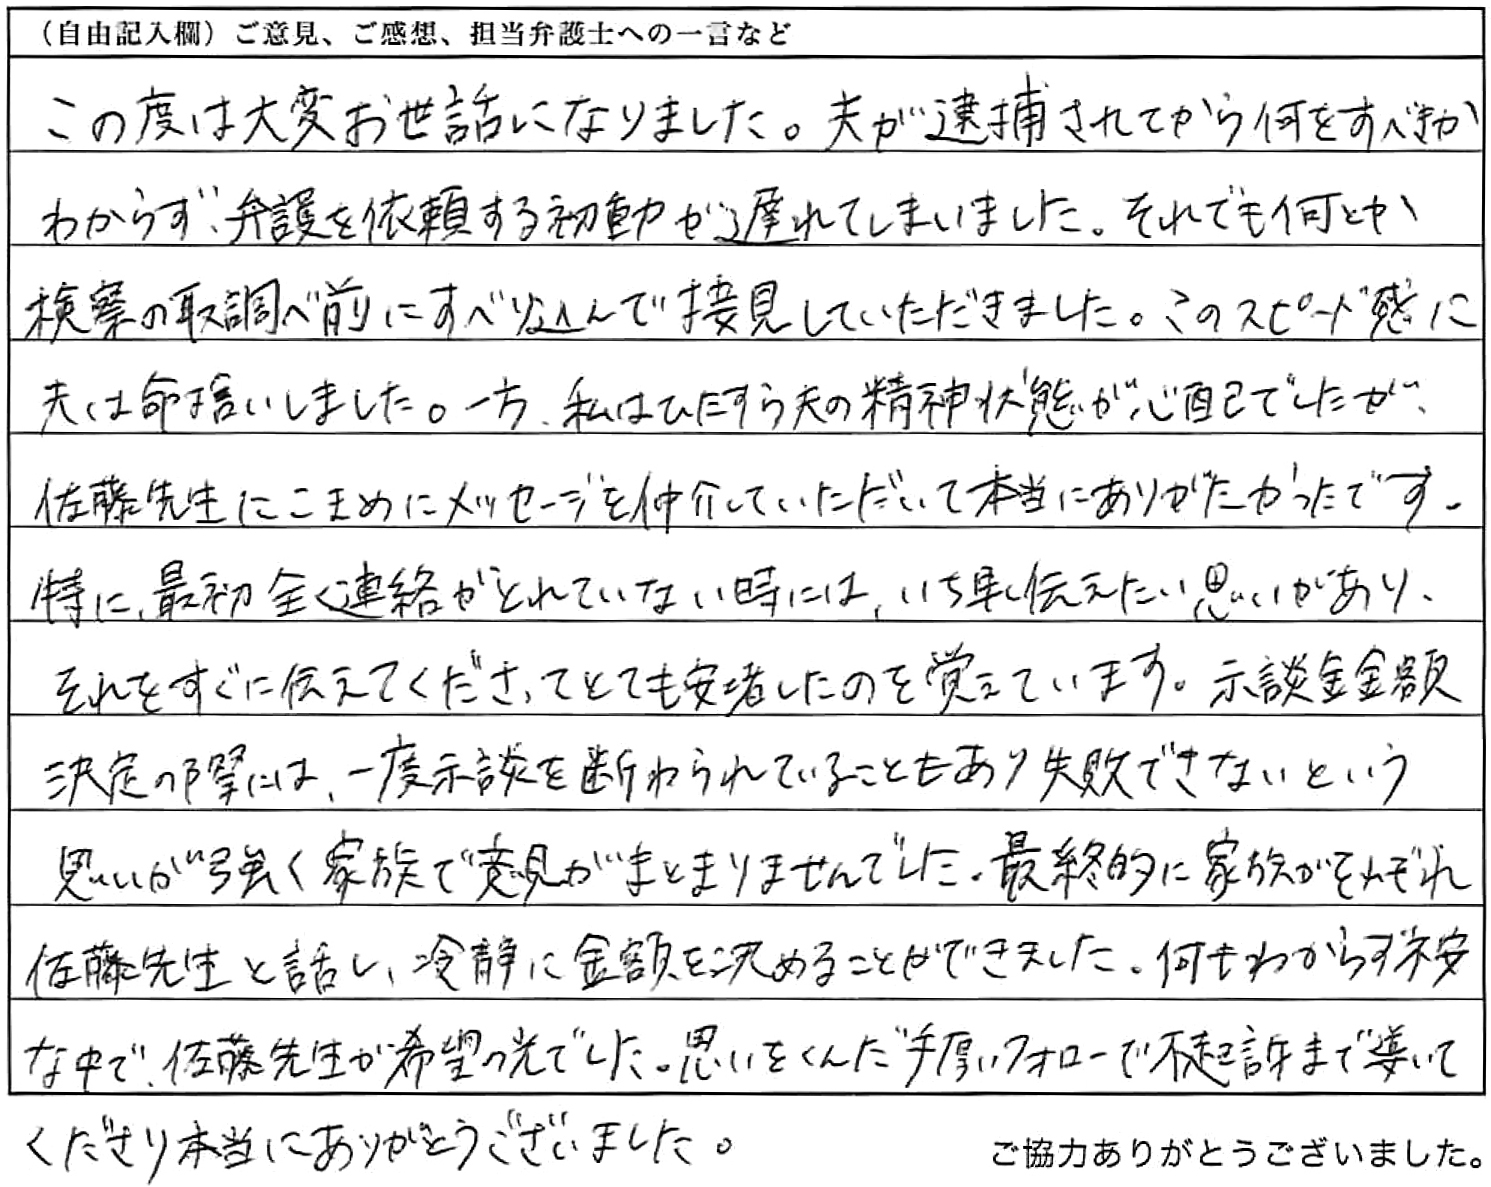 （自由記入欄）ご意見、ご感想、担当弁護士への一言など
この度は大変お世話になりました。夫が逮捕されてから何をすべきか
わからず、弁護を依頼する初動が遅れてしまいました。それでも何とか
検察の取調べ前にすべり込んで接見していただきました。このスピード感に
夫は命拾いしました。一方、私はひたすら夫の精神状態が心配でしたが、
佐藤先生にこまめにメッセージを仲介していただいて本当にありがたかったです。
特に、最初全く連絡がとれていない時には、いち早く伝えたい思いがあり、
それをすぐに伝えてくださってとても安堵したのを覚えています。示談金金額
決定の際には、一度示談を断わられていることもあり失敗できないという
思いが強く家族で意見がまとまりませんでした。最終的に家族がそれぞれ
佐藤先生と話し、冷静に金額を決めることができました。何もわからず不安
な中で、佐藤先生が希望の光でした。思いをくんだ手厚いフォローで不起訴まで導いて
くださり本当にありがとうございました。
ご協力ありがとうございました。